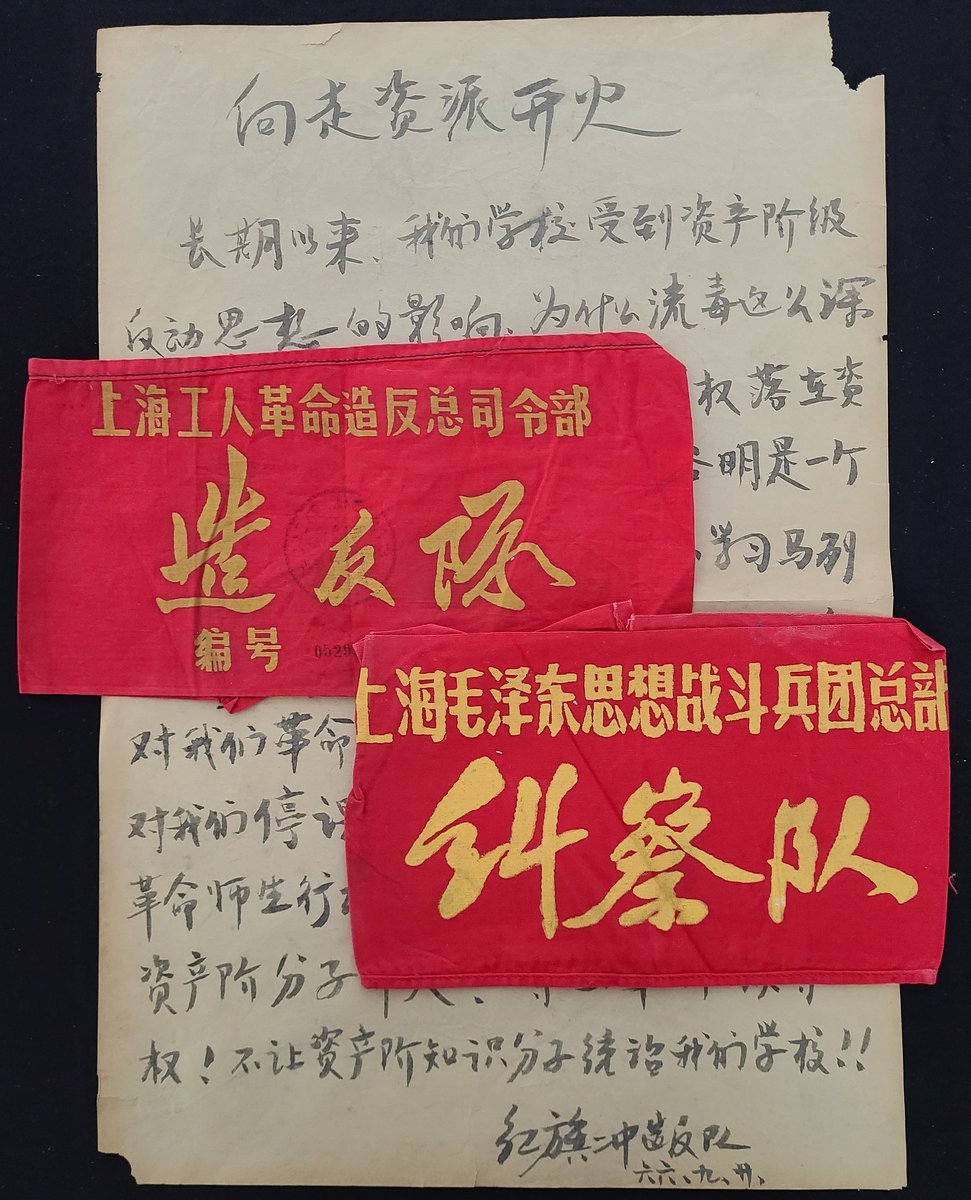 向走资派开火
长期以来、我的学校受到资产阶级
反动思想的影响、为什么流毒这么深
权落在资
明是一个
学习马列
上海工人革命造反总司令部
造反队
编号 0529
上海毛泽东思想战斗兵团总部
纠察队
对我们革命
对我们停课
革命师生行
资产阶分子
权！不让资产阶知识分子统治我们学校！！
红旗冲造反队
六六、九、廿、